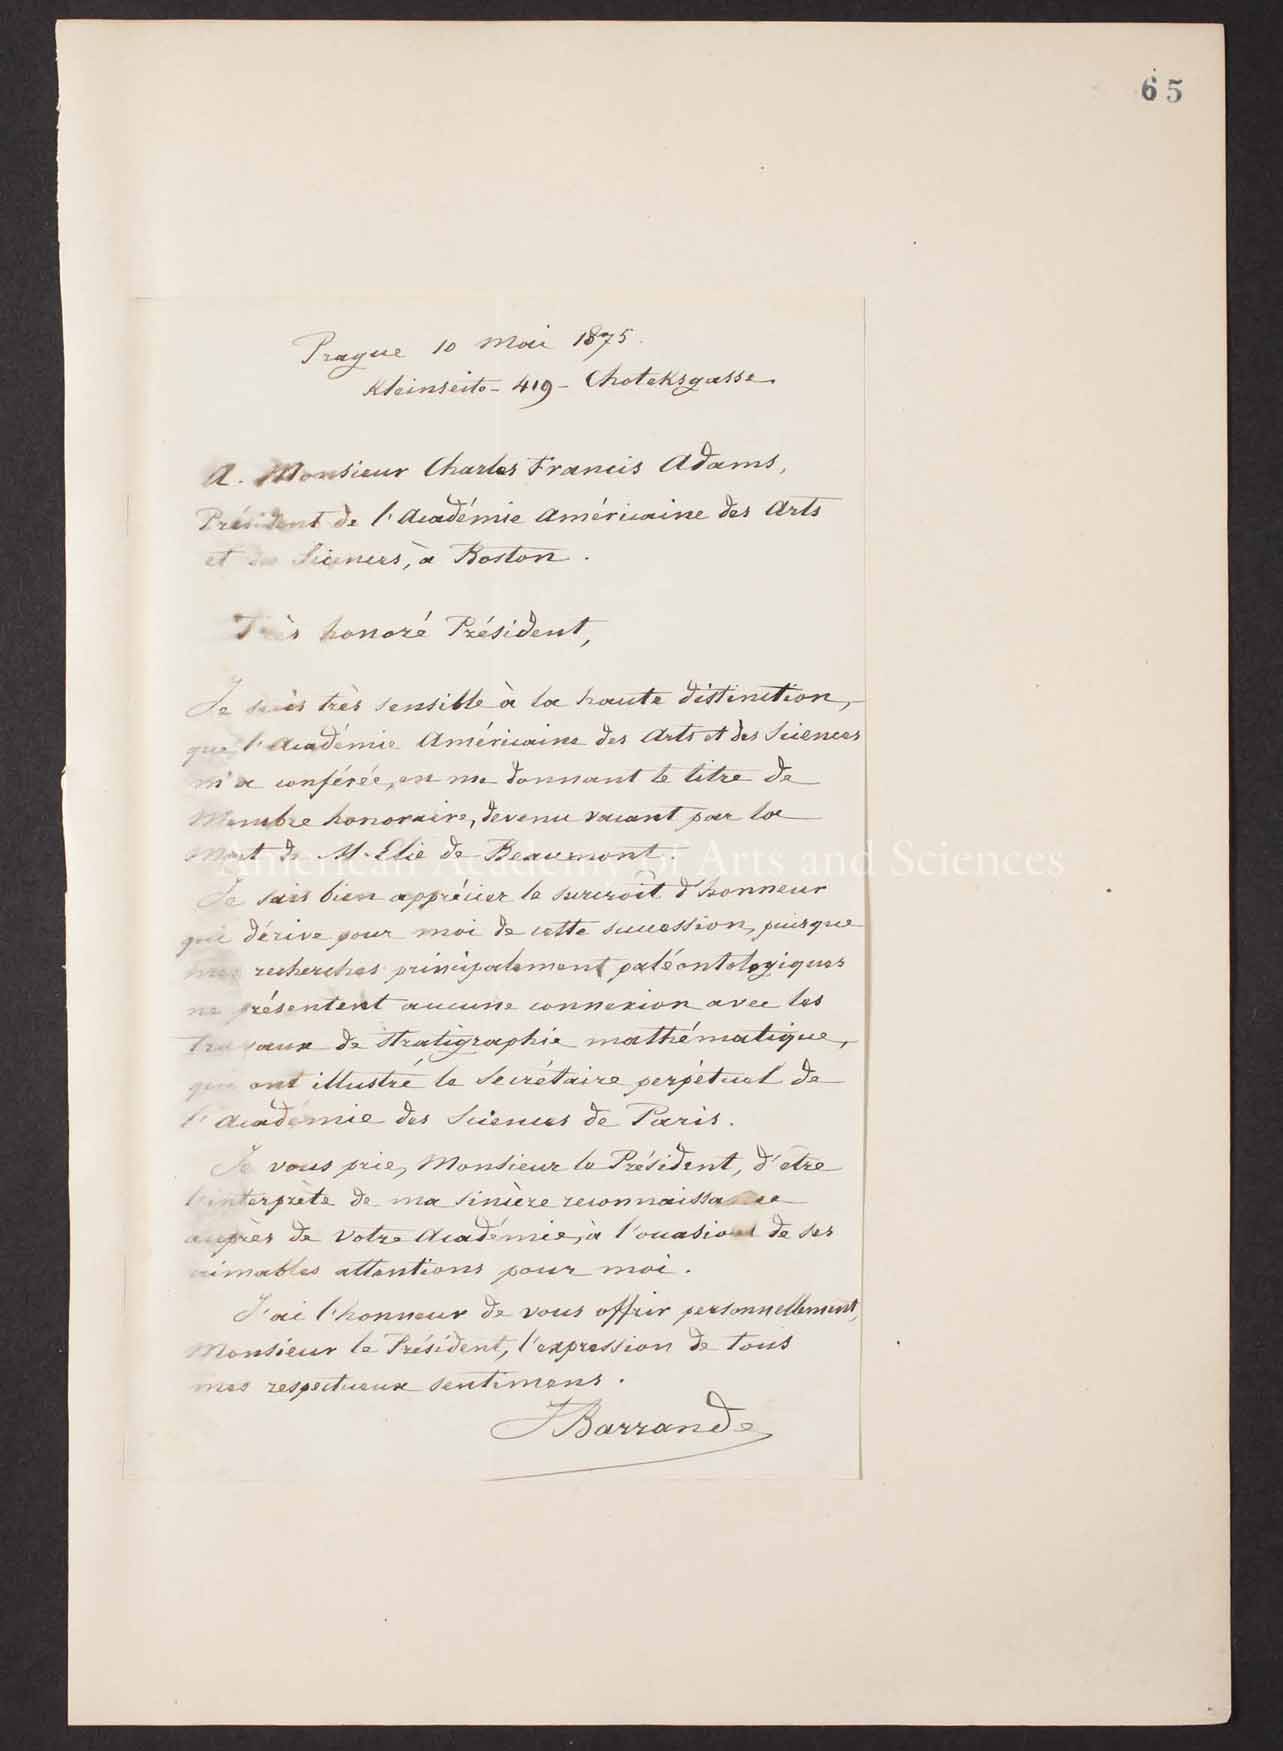 65
Prague 10 Mai 1875.
Kleinseite - 419 - Choteksgasse.
A. Monsieur Charles Francis Adams,
Président de l'Académie Américaine des Arts
et des Sciences, à Boston.
Très honoré Président,
Je suis très sensible à la haute distinction,
que l'Académie Américaine des Arts et des Sciences
m'a conférée, en me donnant le titre de
Membre honoraire, devenu vacant par la
mort de M. Elie de Beaumont.
American Academy of Arts and Sciences
Je sais bien apprécier le surcroît d'honneur
qui dérive pour moi de cette succession, puisque
mes recherches principalement paléontologiques
ne présentent aucune connexion avec les
travaux de stratigraphie mathématique,
qui ont illustré le Secrétaire perpétuel de
l'Académie des Sciences de Paris.
Je vous prie, Monsieur le Président, d'être
l'interprète de ma sincère reconnaissance
auprès de votre Académie, à l'occasion de ses
aimables attentions pour moi.
J'ai l'honneur de vous offrir personnellement,
Monsieur le Président, l'expression de tous
mes respectueux sentimens.
J Barrande